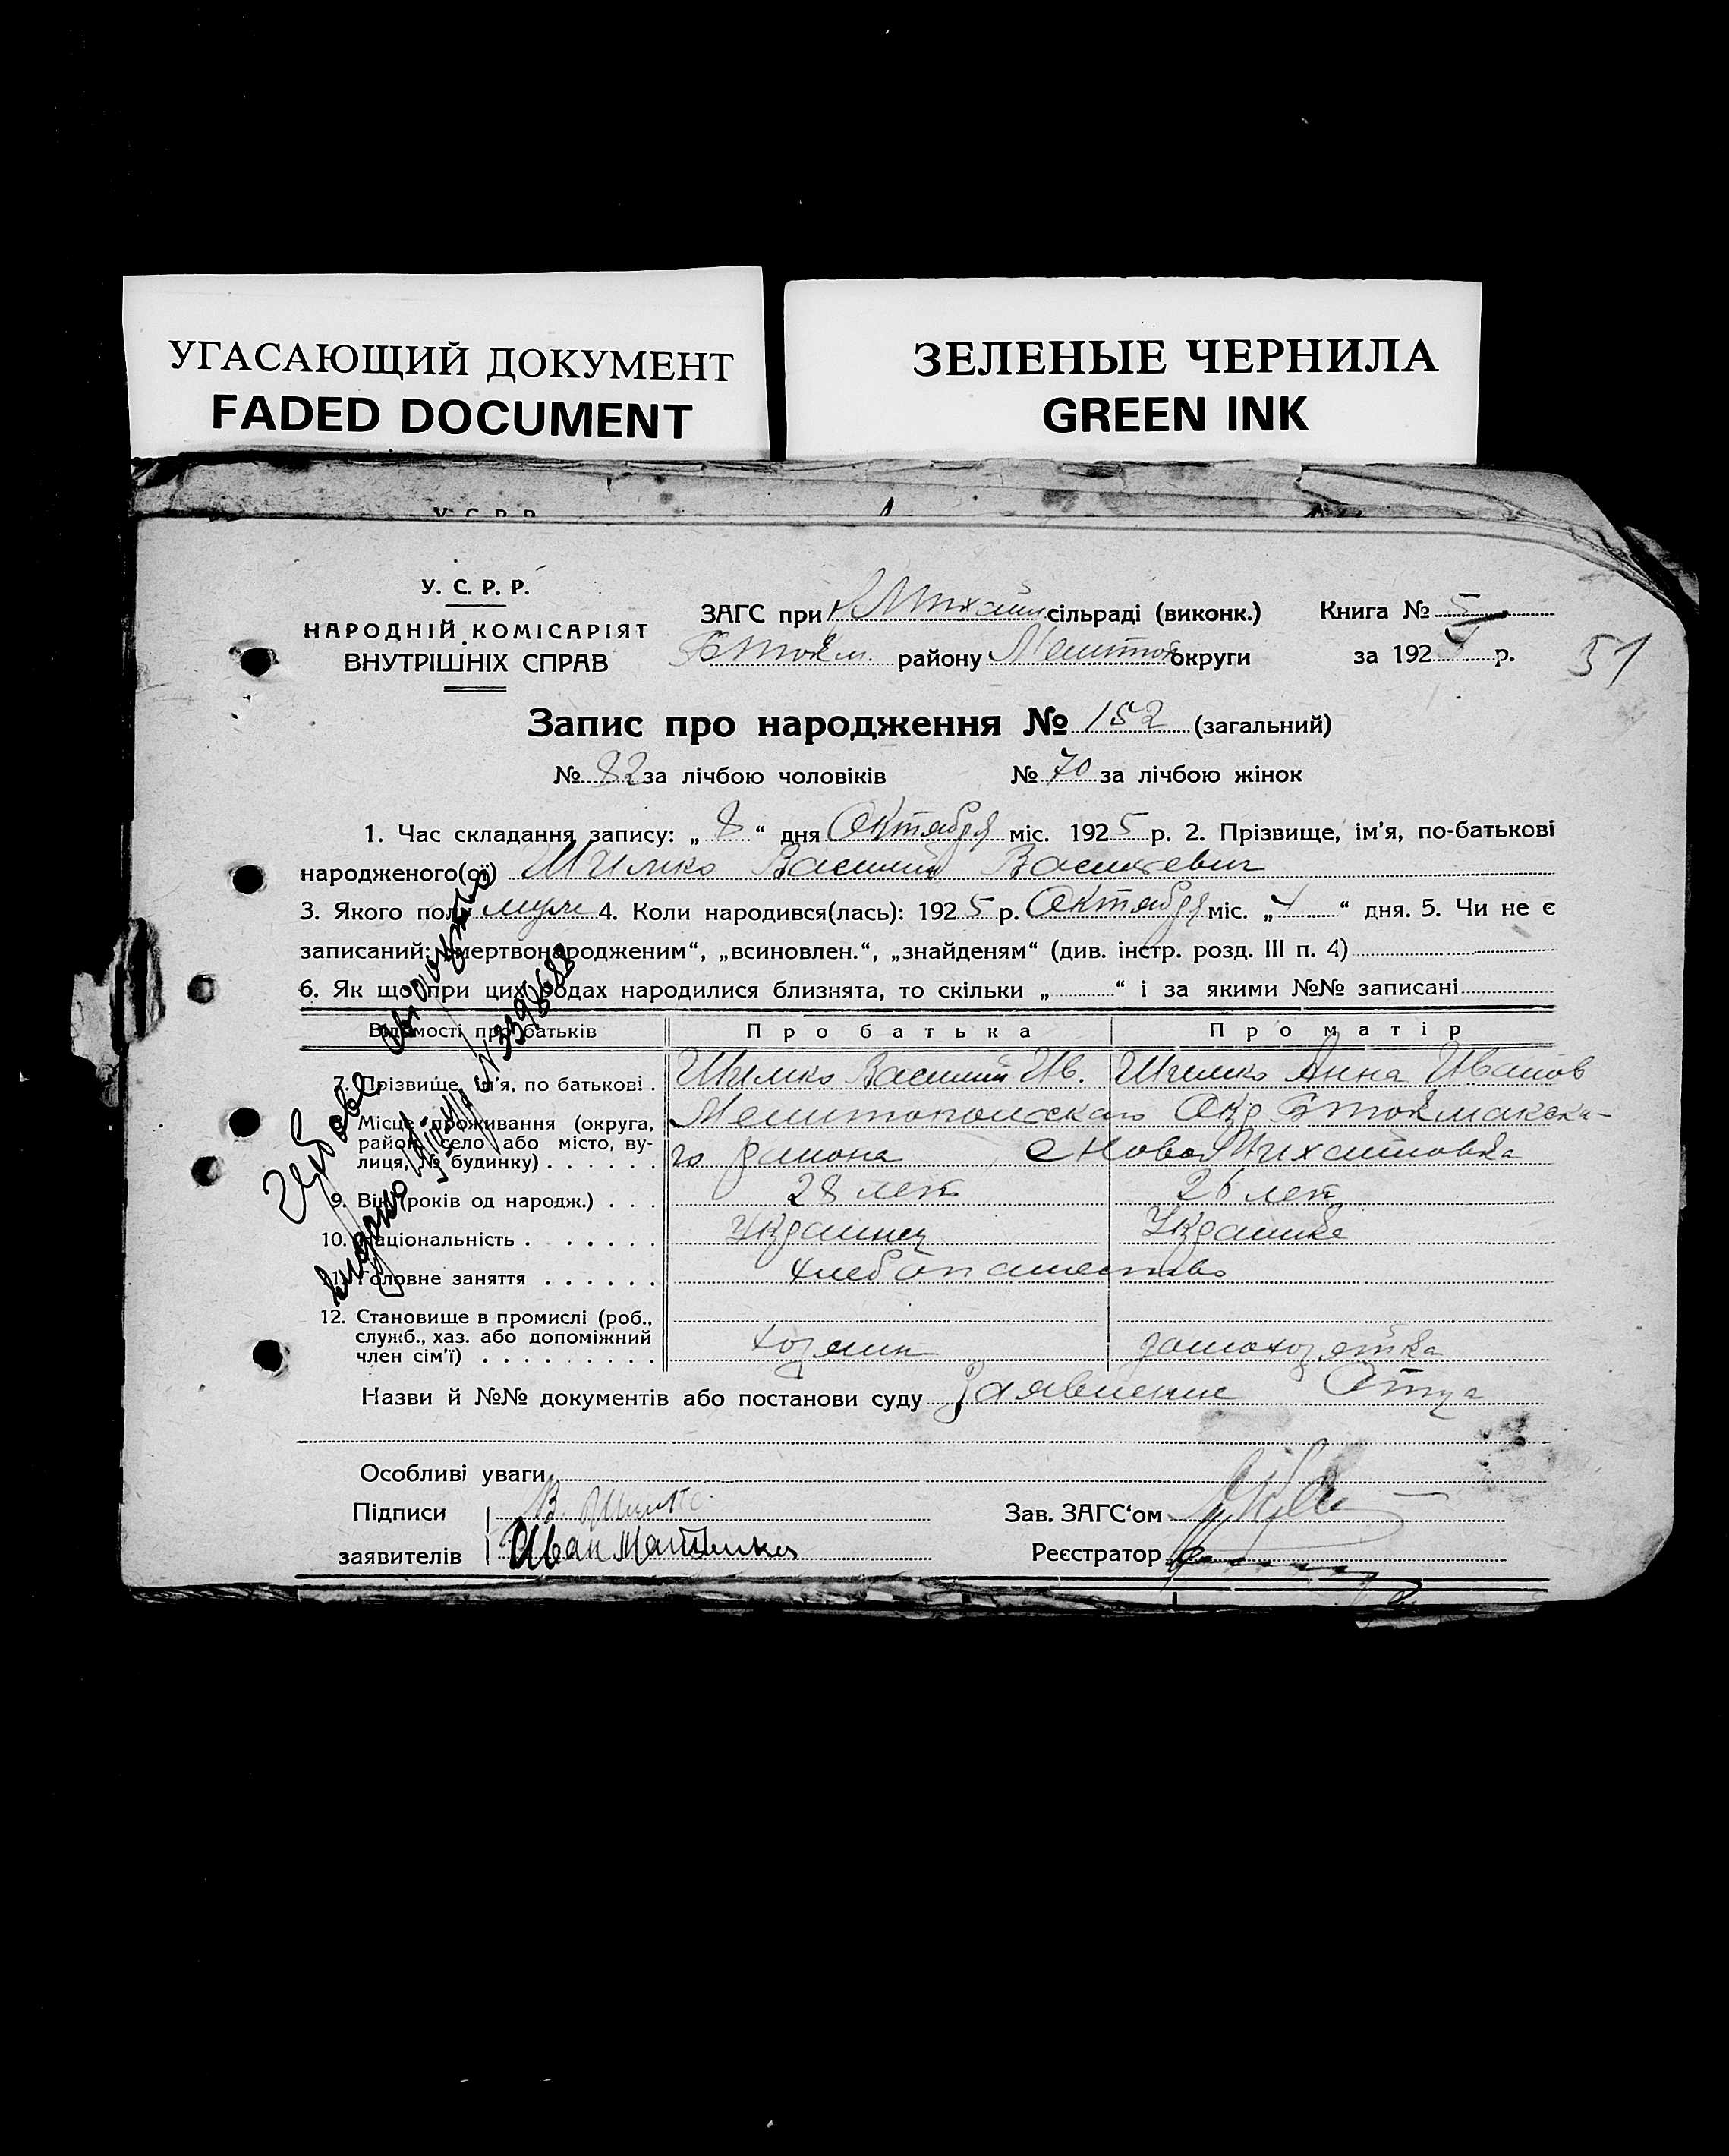 УГАСАЮЩИЙ ДОКУМЕНТ
FADED DOCUMENT
ЗЕЛЕНЫЕ ЧЕРНИЛА
GREEN INK
У. С. Р. Р.
НАРОДНІЙ КОМІСАРІЯТ
ВНУТРІШНІХ СПРАВ
ЗАГС при Н Михайл сільраді (виконк.) Книга № 5
Б Токм. району Мелитоп округи за 1925 р.
51
Запис про народження № 152 (загальний)
№ 82 за лічбою чоловіків № 70 за лічбою жінок
1. Час складання запису: „ 8 “ дня Октября міс. 1925 р. 2. Прізвище, ім'я, по-батькові
народженого(ої) Шимко Василий Васильевич
3. Якого полу муж 4. Коли народився(лась): 1925 р. Октября міс. „ 4 “ дня. 5. Чи не є
записаний: „мертвонародженим“, „всиновлен.“, „знайденям“ (див. інстр. розд. III п. 4)
6. Як що при цих родах народилися близнята, то скільки „ “ і за якими №№ записані
Відомості про батьків Про батька Про матір
7. Прізвище, ім'я, по батькові . Шимко Василий Ив. Шимко Анна Иванов
Місце проживання (округа, Мелитопольскаго Окр Б Токмакска-
район, село або місто, ву-
лиця, № будинку) . . . . . . го района с Ново Михайловка
9. Вік (років од народж.) . . . 28 лет 26 лет
10. Національність . . . . . . Украинец Украинка
11. Головне заняття . . . . . . хлебопашество
12. Становище в промислі (роб.,
служб., хаз. або допоміжний
член сім'ї) . . . . . . . . . хозяин домохозяйка
Назви й №№ документів або постанови суду Заявление Отца
Особливі уваги
Підписи В. Шимко Зав. ЗАГС‘ом
заявителів Иван Реєстратор
Выдано
№ 3398688